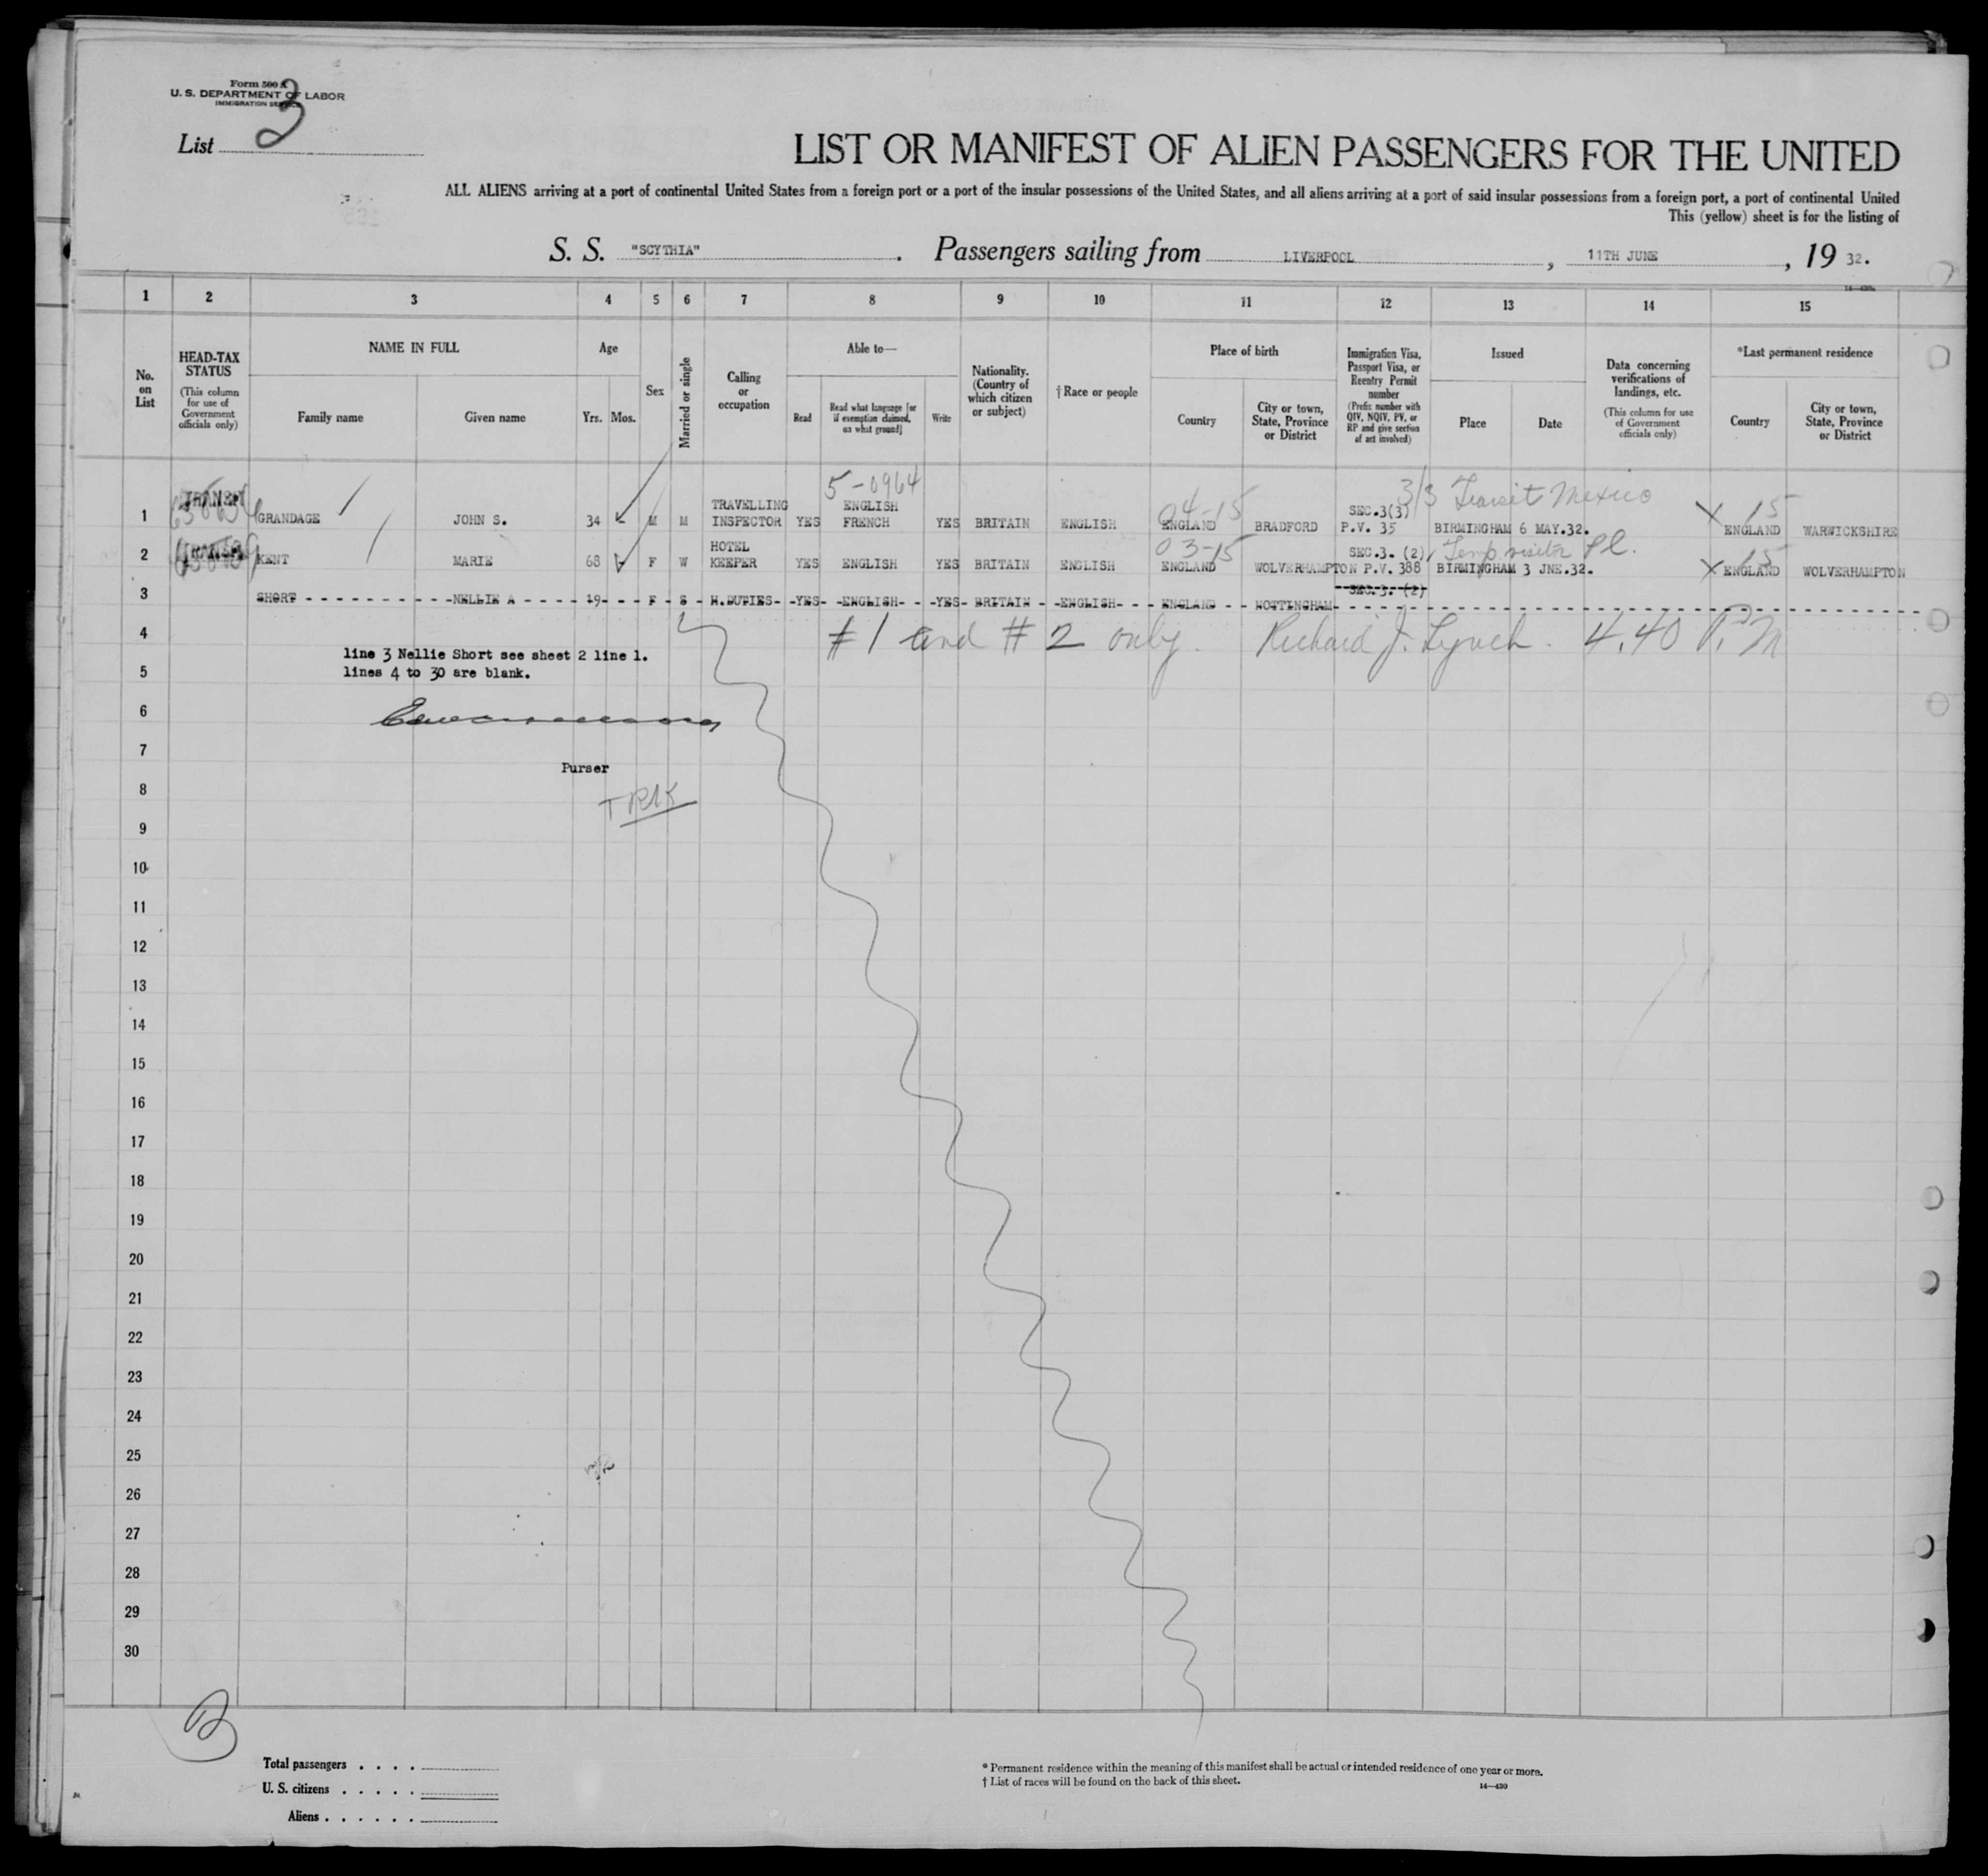 Form 500 A
U. S. DEPARTMENT OF LABOR
IMMIGRATION SERVICE
List 3
LIST OR MANIFEST OF ALIEN PASSENGERS FOR THE UNITED
ALL ALIENS arriving at a port of continental United States from a foreign port or a port of the insular possessions of the United States, and all aliens arriving at a port of said insular possessions from a foreign port, a port of continental United
This (yellow) sheet is for the listing of
S. S. "SCYTHIA". Passengers sailing from LIVERPOOL, 11TH JUNE, 19 32.
1 2 3 4 5 6 7 8 9 10 11 12 13 14 15
No. on List
HEAD-TAX STATUS
(This column for use of Government officials only)
NAME IN FULL
Family name
Given name
Age
Yrs. Mos.
Sex
Married or single
Calling or occupation
Able to—
Read
Read what language [or if exemption claimed, on what ground]
Write
Nationality. (Country of which citizen or subject)
† Race or people
Place of birth
Country
City or town, State, Province or District
Immigration Visa, Passport Visa, or Reentry Permit number
(Prefix number with QIV, NQIV, PV, or RP and give section of act involved)
Issued
Place
Date
Data concerning verifications of landings, etc.
(This column for use of Government officials only)
*Last permanent residence
Country
City or town, State, Province or District
5-0964
3/3 Transit Mexico
TRANSIT
TRAVELLING ENGLISH 04-15 SEC.3(3) X 15
1 GRANDAGE JOHN S. 34 M M INSPECTOR YES FRENCH YES BRITAIN ENGLISH ENGLAND BRADFORD P.V. 35 BIRMINGHAM 6 MAY.32. ENGLAND WARWICKSHIRE
HOTEL 03-15 SEC.3. (2) Temp visitor Pl. X 15
2 KENT MARIE 68 F W KEEPER YES ENGLISH YES BRITAIN ENGLISH ENGLAND WOLVERHAMPTON P.V. 388 BIRMINGHAM 3 JNE.32. ENGLAND WOLVERHAMPTON
SEC.3.(2)
3 SHORT NELLIE A 19 F S H.DUTIES YES ENGLISH YES BRITAIN ENGLISH ENGLAND NOTTINGHAM
4 #1 and #2 only. Richard J. Lynch. 4.40 P.M
line 3 Nellie Short see sheet 2 line 1.
5 lines 4 to 30 are blank.
6
7
Purser
8
9
10
11
12
13
14
15
16
17
18
19
20
21
22
23
24
25
26
27
28
29
30
Total passengers . . . .
U. S. citizens . . . . .
Aliens . . . . . .
* Permanent residence within the meaning of this manifest shall be actual or intended residence of one year or more.
† List of races will be found on the back of this sheet.
14—430